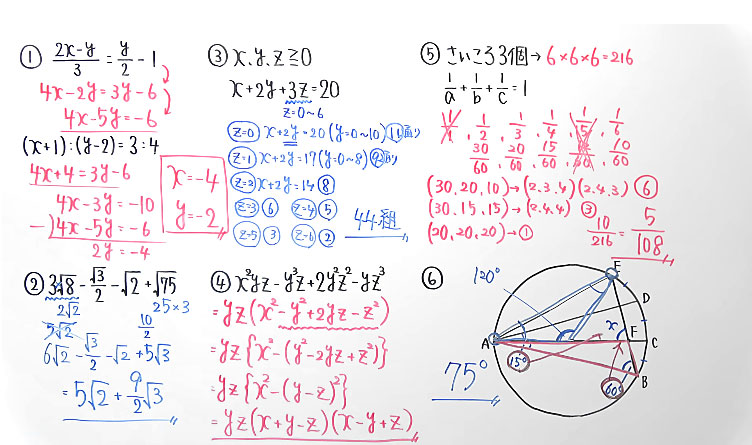 ① (2x-y)/3 = y/2 - 1
4x-2y=3y-6
4x-5y=-6
(x+1):(y-2)=3:4
4x+4=3y-6
4x-3y=-10
-)4x-5y=-6
2y=-4
x=-4
y=-2
② 3√8 - √3/2 - √2 + √75
2√2
25×3
5√2
10/2
6√2 - √3/2 - √2 + 5√3
= 5√2 + 9/2√3
③ x,y,z≧0
x+2y+3z=20
z=0~6
z=0 x+2y=20(y=0~10) 11通り
z=1 x+2y=17(y=0~8) 9通り
z=2 x+2y=14 ⑧
z=3 ⑥ z=4 ⑤
z=5 ③ z=6 ②
44組
④ x²yz-y³z+2y²z²-yz³
=yz(x²-y²+2yz-z²)
=yz{x²-(y²-2yz+z²)}
=yz{x²-(y-z)²}
=yz(x+y-z)(x-y+z)
⑤ さいころ3個→6×6×6=216
1/a+1/b+1/c=1
1/1, 1/2, 1/3, 1/4, 1/5, 1/6
30/60 20/60 15/60 10/60
(30,20,10)→(2.3.4)(2.4.3) ⑥
(30,15,15)→(2.4.4) ③
(20,20,20)→①
10/216=5/108
⑥
120°
E
D
A
x
F
C
B
15°
60°
75°